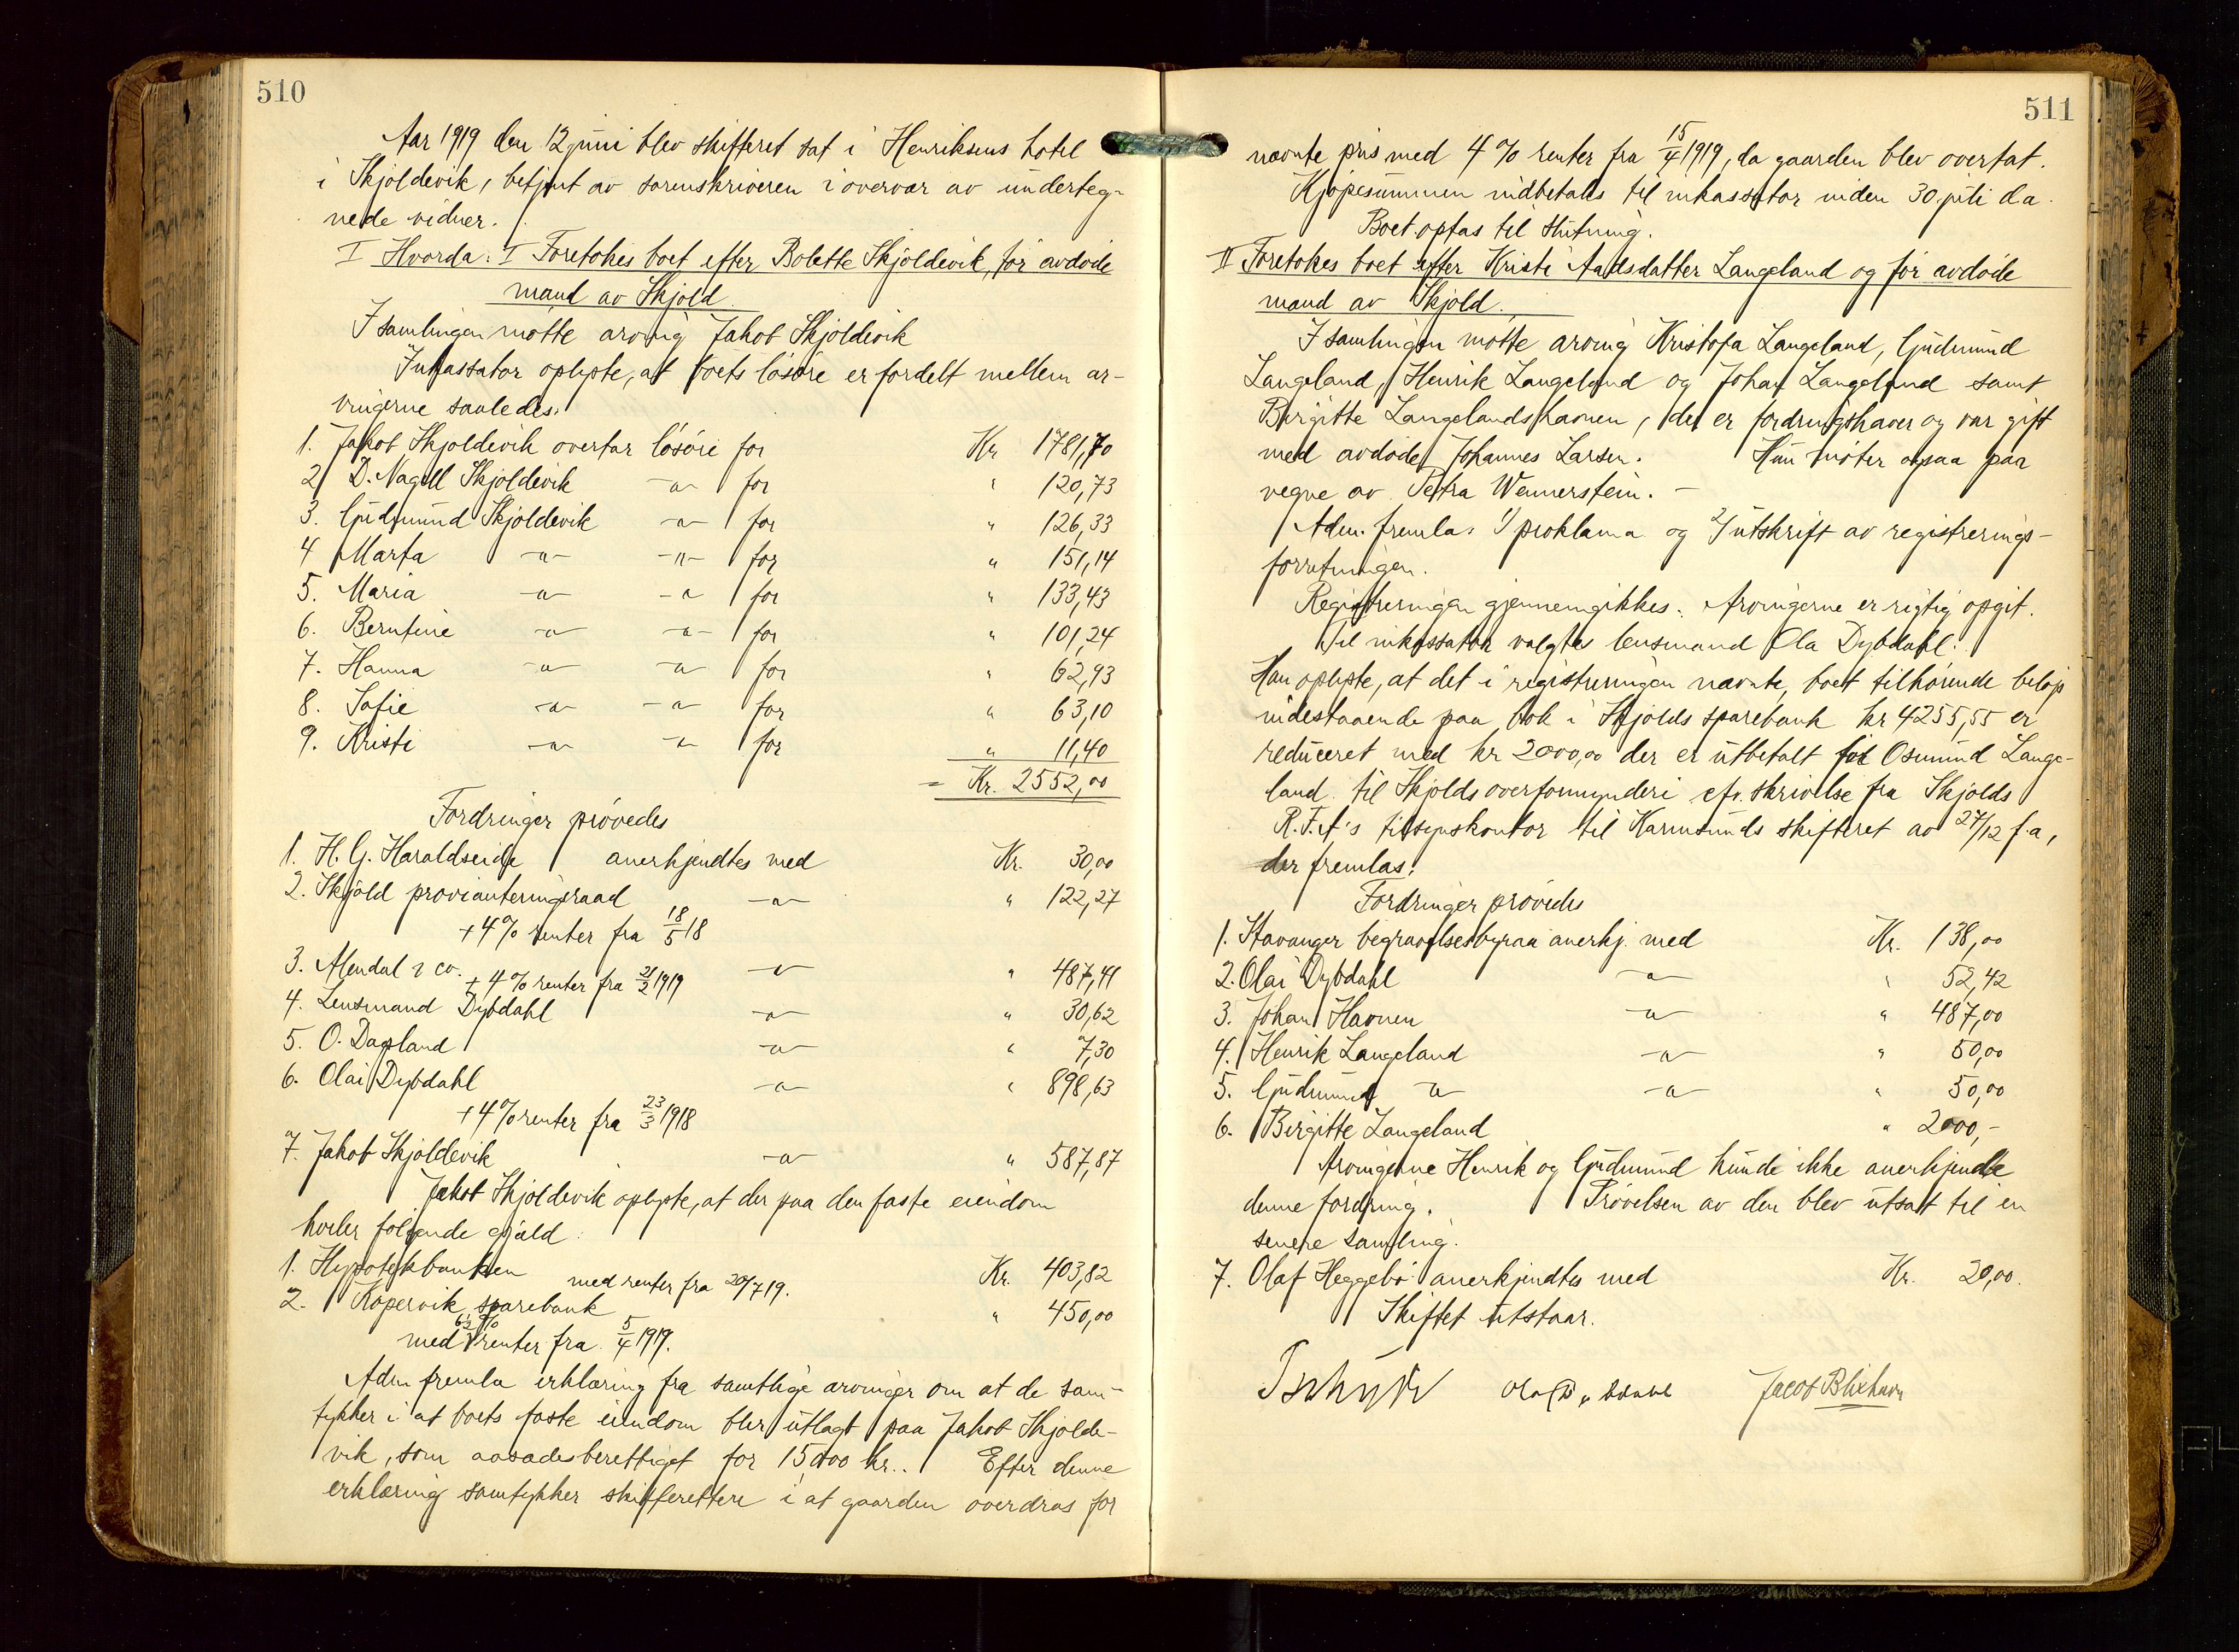 510
Aar 1919 den 12 juni blev skifteret sat i Henriksens hotel
i Skjoldevik, betjent av sorenskriveren i overvær av underteg-
nede vidner.
I Hvorda: I Foretokes boet efter Bolette Skjoldevik, før avdøde
mand av Skjold.
I samlingen møtte arving Jakob Skjoldevik
Inkassator oplyste, at boets løsøre er fordelt mellem ar-
vingerne saaledes:
1. Jakob Skjoldevik overtar løsøre for Kr. 1781,70
2. D. Nagell Skjoldevik -"- for " 120,73
3. Gudmund Skjoldevik -"- for " 126,33
4 Marta -"- -"- for " 151,14
5. Maria -"- -"- for " 133,43
6. Berntine -"- -"- for " 101,24
7. Hanna -"- -"- for " 62,93
8. Sofie -"- -"- for " 63,10
9. Kristi -"- -"- for " 11,40
= Kr. 2552,00
Fordringer prøvedes
1. H. G. Haraldseide anerkjendtes med Kr. 30,00
2. Skjold provianteringsraad -"- " 122,27
+ 4% renter fra 18/5 18
3. Mendal & co. + 4% renter fra 21/2 1919 -"- " 487,41
4. Lensmand Dybdahl -"- " 30,62
5. O. Dagsland -"- " 7,30
6. Olai Dybdahl -"- " 898,63
+ 4% renter fra 23/3 1918
7. Jakob Skjoldevik -"- " 587,87
Jakob Skjoldevik oplyste, at der paa den faste eiendom
hviler følgende gjæld:
1. Hypotekbanken med renter fra 20/7 19. Kr. 403,82
2. Kopervik sparebank " 450,00
med % renter fra 5/4 1919.
Adm. fremla erklæring fra samtlige arvinger om at de sam-
tykker i at boets faste eiendom blir utlagt paa Jakob Skjolde-
vik, som aasædesberettiget for 15000 kr.. Efter denne
erklæring samtykker skifteretten i at gaarden overdras for
511
nævnte pris med 4% renter fra 15/4 1919, da gaarden blev overtat.
Kjøpesummen indbetales til inkassator inden 30. juli d.a.
Boet optas til slutning.
II Foretokes boet efter Kristi Aadsdatter Langeland og før avdøde
mand av Skjold.
I samlingen møtte arving Kristofa Langeland, Gudmund
Langeland, Henrik Langeland og Johan Langeland samt
Birgitte Langelandshavnen, der er fordringshaver og var gift
med avdøde Johannes Larsen. Hun møter ogsaa paa
vegne av Petra Wennerstein. -
Adm. fremla: 1/ proklama og 2/ utskrift av registrerings-
forretningen.
Registreringen gjennemgikkes. Arvingerne er rigtig opgit.
Til inkassator valgtes lensmand Ola Dybdahl.
Han oplyste, at det i registreringen nævnte, boet tilhørende beløp
indestaaende paa bok i Skjolds sparebank kr 4255,55 er
reduceret med kr 2000,00 der er utbetalt for Osmund Lange-
land til Skjolds overformynderi cfr. skrivelse fra Skjolds
R.F.A's tilsynskontor til Karmsunds skifteret av 27/12 f.a,
der fremlas.
Fordringer prøvedes
1. Stavanger begravelsesbyraa anerkj. med Kr. 138,00
2. Olai Dybdahl -"- " 52,42
3. Johan Havnen -"- " 487,00
4. Henrik Langeland -"- " 50,00
5. Gudmund -"- -"- " 50,00
6. Birgitte Langeland " 2000,-
Arvingerne Henrik og Gudmund kunde ikke anerkjende
denne fordring. Prøvelsen av den blev utsat til en
senere samling.
7. Olaf Heggebø anerkjendtes med Kr. 20,00.
Skiftet utstaar.
Jacob Blikhavn